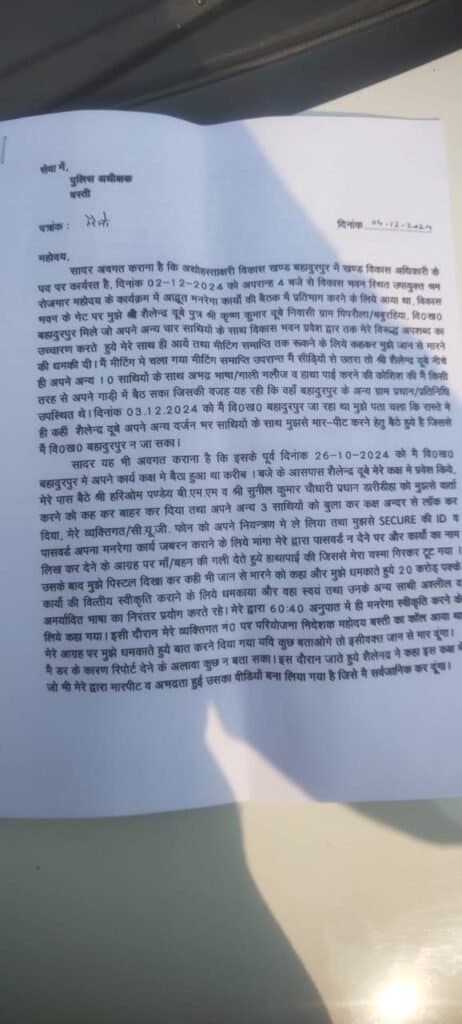 सेवा में,
पुलिस अधीक्षक
बस्ती
पत्रांक :
दिनांक 04-12-2024
महोदय,
सादर अवगत कराना है कि अधोहस्ताक्षरी विकास खण्ड बहादुरपुर में खण्ड विकास अधिकारी के
पद पर कार्यरत है, दिनांक 02-12-2024 को अपरान्ह 4 बजे से विकास भवन स्थित उपायुक्त श्रम
रोजगार महोदय के कार्यक्रम में आहूत मनरेगा कार्यो की बैठक में प्रतिभाग करने के लिये आया था, विकास
भवन के गेट पर मुझे श्री शैलेन्द्र दूबे पुत्र श्री कृष्ण कुमार दूबे निवासी ग्राम पिपरौला/बबुरहिया, वि0ख0
बहादुरपुर मिले जो अपने अन्य चार साथियों के साथ विकास भवन प्रवेश द्वार तक मेरे विरूद्ध अपशब्द का
उच्चारण करते हुये मेरे साथ ही आयें तथा मीटिंग समाप्ति तक रूकने के लिये कहकर मुझे जान से मारने
की धमकी दी। मैं मीटिंग मे चला गया मीटिंग समाप्ति उपरान्त मैं सीढ़ियो से उतरा तो श्री शैलेन्द्र दूबे नीचे
ही अपने अन्य 10 साथियों के साथ अभद्र भाषा/गाली गलौज व हाथा पाई करने की कोशिश की मैं किसी
तरह से अपने गाड़ी में बैठ सका जिसकी वजह यह रही कि वहाँ बहादुरपुर के अन्य ग्राम प्रधान/प्रतिनिधि
उपस्थित थे। दिनांक 03.12.2024 को मैं वि0ख0 बहादुरपुर जा रहा था मुझे पता चला कि रास्ते में
ही कही शैलेन्द्र दूबे अपने अन्य दर्जन भर साथियों के साथ मुझसे मार-पीट करने हेतु बैठे हुये है जिससे
मैं वि0ख0 बहादुरपुर न जा सका।
सादर यह भी अवगत कराना है कि इसके पूर्व दिनांक 26-10-2024 को मै वि0ख0
बहादुरपुर मे अपने कार्य कक्ष मे बैठा हुआ था करीब 1 बजे के आसपास शैलेन्द्र दूबे मेरे कक्ष मे प्रवेश किये,
मेरे पास बैठे श्री हरिओम पाण्डेय बी.एम.एम व श्री सुनील कुमार चौधारी प्रधान डारीडीहा को मुझसे वार्ता
करने को कह कर बाहर कर दिया तथा अपने अन्य 3 साथियों को बुला कर कक्ष अन्दर से लॉक कर
दिया, मेरे व्यक्तिगत/सी.यू.जी. फोन को अपने नियन्त्रण मे ले लिया तथा मुझसे SECURE की ID व
पासवर्ड अपना मनरेगा कार्य जबरन कराने के लिये मांगा मेरे द्वारा पासवर्ड न देने पर और कार्यो का नाम
लिख कर देने के आग्रह पर माँ/बहन की गली देते हुये हाथापाई की जिससे मेरा चस्मा गिरकर टूट गया ।
उसके बाद मुझे पिस्टल दिखा कर कही भी जान से मारने को कहा और मुझे धमकाते हुये 20 करोड़ पक्के
कार्यो की वित्तीय स्वीकृति कराने के लिये धमकाया और वहा स्वयं तथा उनके अन्य साथी अश्लील व
अमर्यादित भाषा का निरतर प्रयोग करते रहे। मेरे द्वारा 60:40 अनुपात मे ही मनरेगा स्वीकृति करने के
लिये कहा गया। इसी दौरान मेरे व्यक्तिगत नं0 पर परियोजना निदेशक महोदय बस्ती का कॉल आया था
मेरे आग्रह पर मुझे धमकाते हुये बात करने दिया गया यदि कुछ बताओगे तो इसीवक्त जान से मार दूंगा।
मै डर के कारण रिपोर्ट देने के अलावा कुछ न बता सका। इस दौरान जाते हुये शैलेन्द्र ने कहा इस कक्ष में
जो भी मेरे द्वारा मारपीट व अभद्रता हुई उसका वीडियो बना लिया गया है जिसे मै सर्वजानिक कर दूंगा।